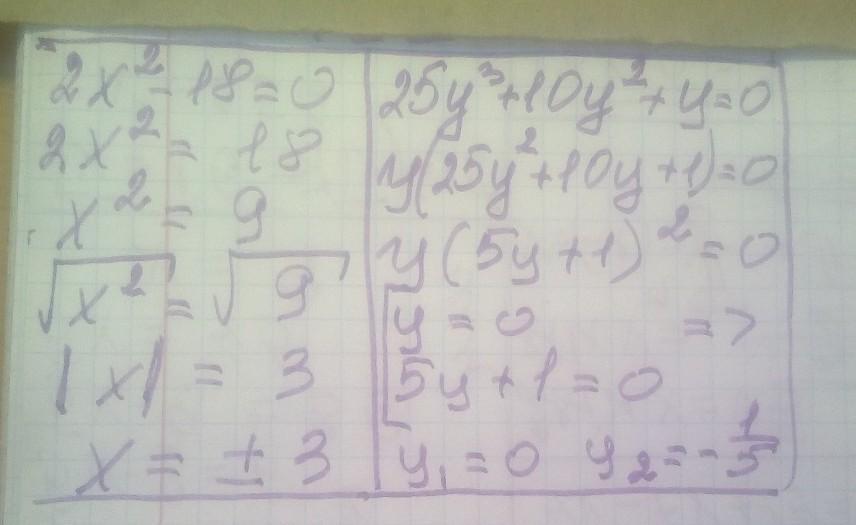 2x² - 18 = 0
2x² = 18
x² = 9
√x² = √9
|x| = 3
x = ± 3
25y³ + 10y² + y = 0
y(25y² + 10y + 1) = 0
y(5y + 1)² = 0
[y = 0 =>
[5y + 1 = 0
y₁ = 0 y₂ = - 1/5